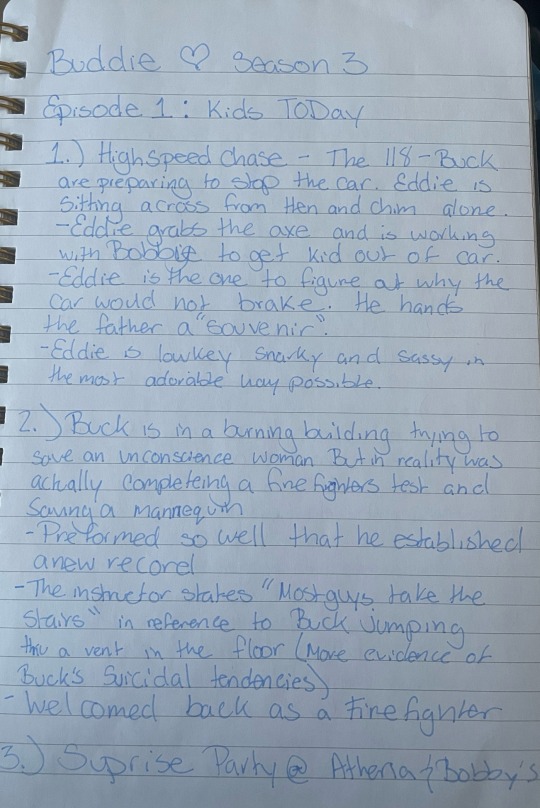 Buddie ♡ Season 3
Episode 1: Kids TODay
1.) High speed chase - The 118 - Buck
are preparing to stop the car. Eddie is
sitting across from Hen and chim alone.
- Eddie grabs the axe and is working
with Bobbie to get kid out of car.
- Eddie is the one to figure at why the
car would not brake. He hands
the father a "souvenir".
- Eddie is lowkey snarky and sassy in
the most adorable way possible.
2.) Buck is in a burning building trying to
save an unconscience woman. But in reality was
actually completeing a firefighters test and
saving a mannequin
- Preformed so well that he established
a new record
- The instructor states "Most guys take the
stairs" in reference to Buck jumping
thru a vent in the floor (More evidence of
Buck's Suicidal tendencies)
- Welcomed back as a firefighter
3.) Suprise Party @ Athena & Bobby's